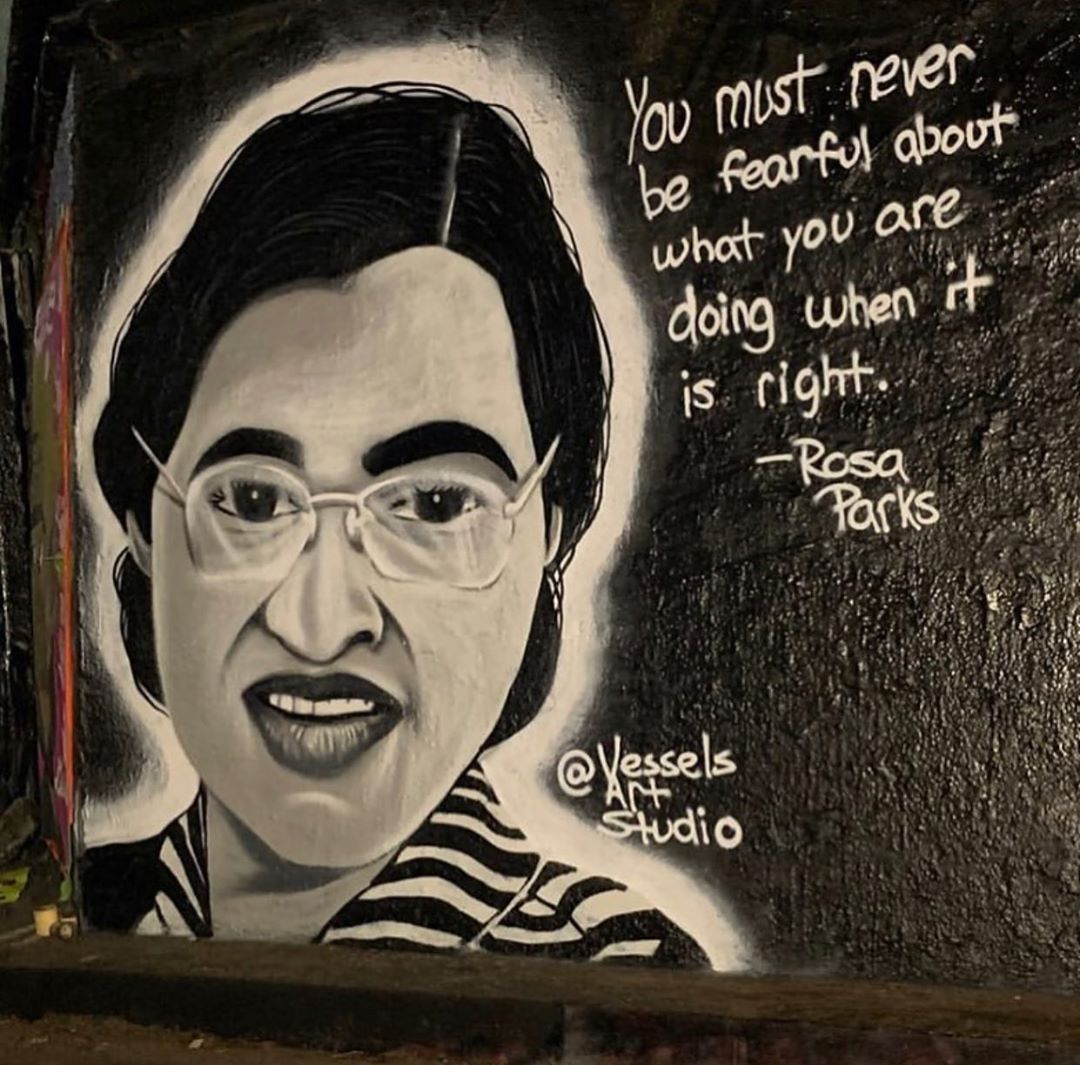 You must never
be fearful about
what you are
doing when it
is right.
-Rosa
Parks
@Vessels
Art
Studio